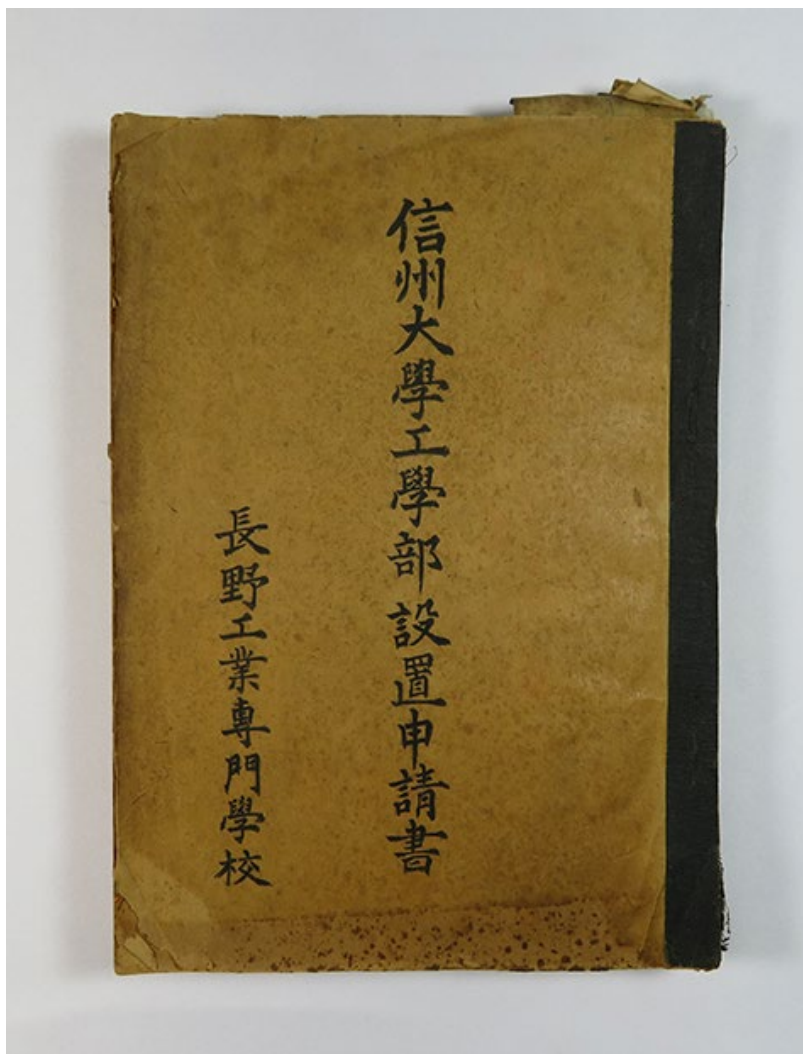 信州大學工學部設置申請書
長野工業専門學校